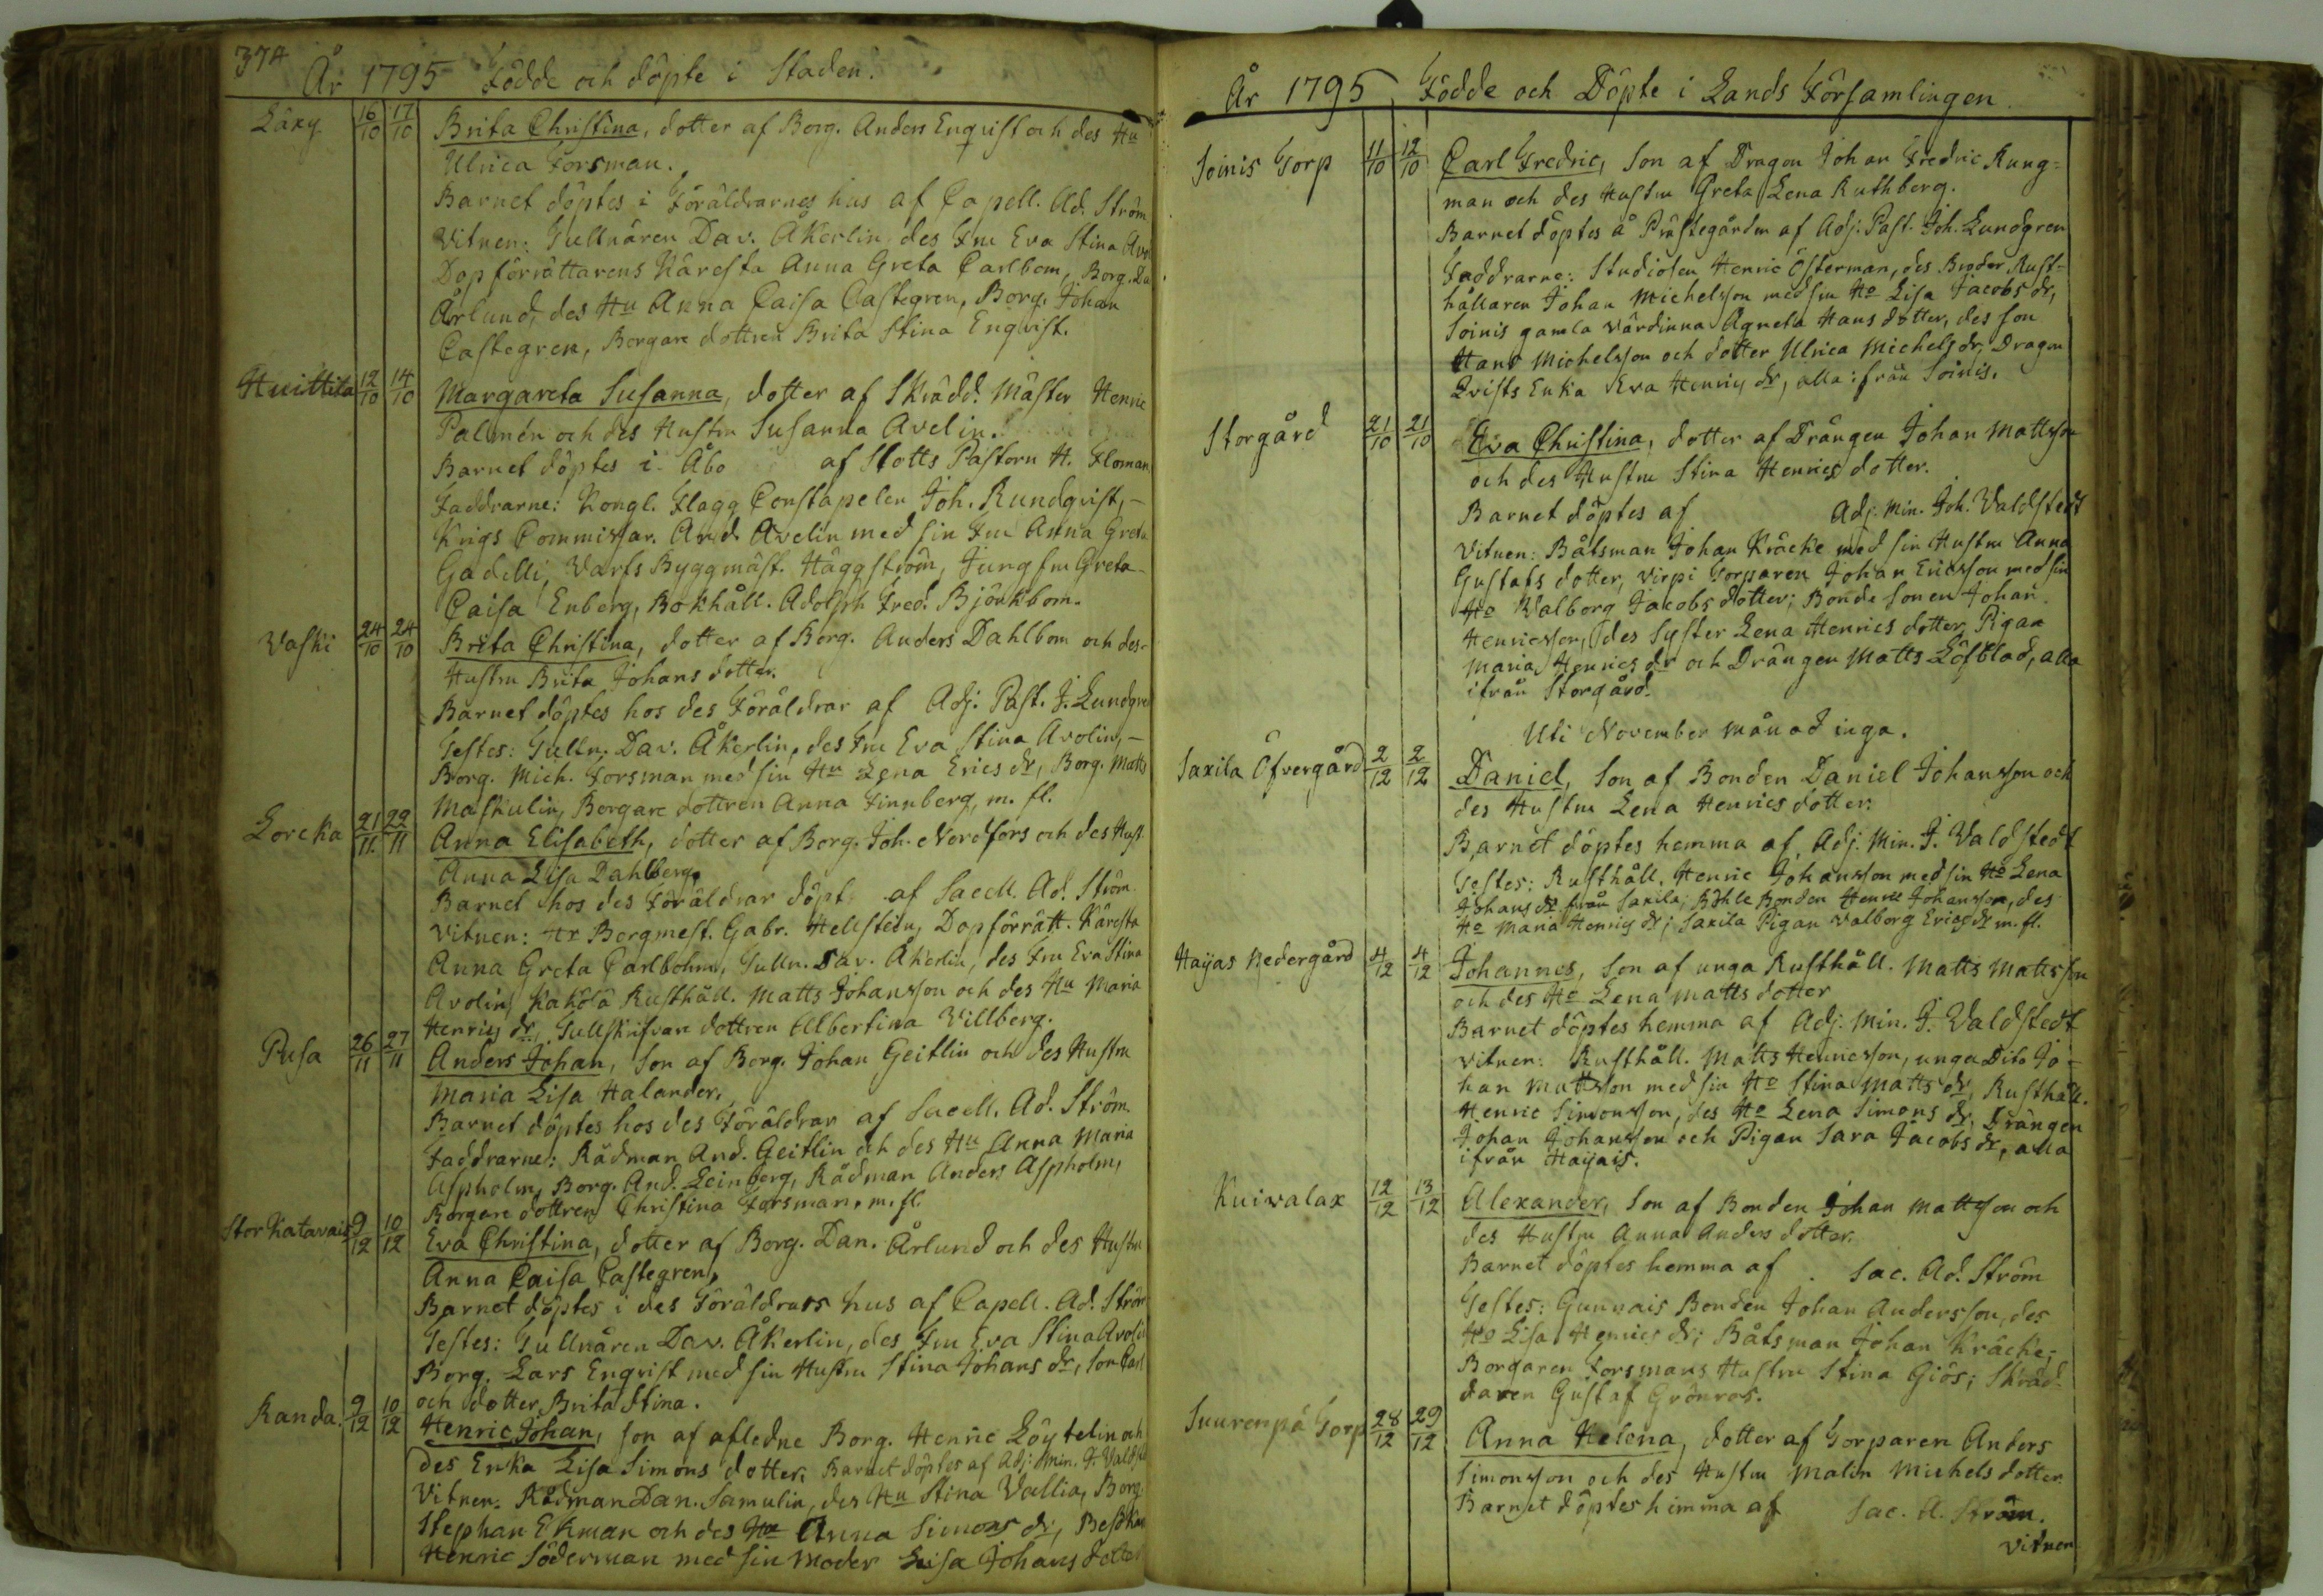 374
År 1795 Födde och döpte i Staden.
Läxy 16/10 17/10 Brita Christina, dotter af Borg. Anders Enqvist och des Hu
Ulrica Forsman.
Barnet döptes i Föräldrarnes hus af Capell. Ad. Ström
Vitnen: Tullnären Dav. Åkerlin, des Fru Eva Stina Avo
Dopförrättarens Käresta Anna Greta Carlbom, Borg. Da
Årlund, des Hu Anna Caisa Castegren, Borg. Johan
Castegren, Borgare dottren Brita Stina Enqvist.
Huittita 12/10 14/10 Margareta Susanna, dotter af Skrädd. Mäster Henric
Palmén och des Hustru Susanna Avelin.
Barnet döptes i Åbo af Slotts Pastorn H. Floman
Faddrarne: Kongl. Flagg Constapelen Joh. Rundqvist, -
Krigs Commissar. And. Avelin med sin Fru Anna Greta
Gadelli, Varfs Byggmäst. Häggström, Jungfru Greta
Caisa Enberg, Bokhåll. Adolph Fred. Björkbom.
Vaski 24/10 24/10 Brita Christina, dotter af Borg. Anders Dahlbom och des
Hustru Brita Johans dotter.
Barnet döptes hos des Föräldrar af Adj. Past. J. Lundgre
Testes: Tulln. Dav. Åkerlin, des Fru Eva Stina Avolin, -
Borg. Mich. Forsman med sin Hu Lena Erics dr, Borg. Matts
Maskulin, Borgare dottren Anna Finnberg, m. fl.
Loreka 21/11 22/11 Anna Elisabeth, dotter af Borg. Joh. Nordfors och des Hust.
Anna Lisa Dahlberg.
Barnet hos des Föräldrar döpt af Sacell. Ad. Ström
Vitnen: Hr Borgmest. Gabr. Hellsteen, Dopförrätt. Käresta
Anna Greta Carlbohm, Tulln. Dav. Åkerlin, des Fru Eva Stina
Avolin, Kakola Rusthåll. Matts Johansson och des Hu Maria
Henrics dr, Tullskrifvare dottren Albertina Villberg.
Pusa 26/11 27/11 Anders Johan, Son af Borg. Johan Geitlin och des Hustru
Maria Lisa Halander.
Barnet döptes hos des Föräldrar af Sacell. Ad. Ström.
Faddrarne: Rådman And. Geitlin och des Hu Anna Maria
Aspholm, Borg. And. Leinberg, Rådman Anders Aspholm,
Borgare dottren Christina Forsman, m. fl.
Stor Katavais 9/12 10/12 Eva Christina, dotter af Borg. Dan. Årlund och des Hustru
Anna Caisa Castegren,
Barnet döptes i des Föräldrars hus af Capell. Ad. Ström
Testes: Tullnären Dav. Åkerlin, des Fru Eva Stina Avolin
Borg. Lars Enqvist med sin Hustru Stina Johans dr, Son Carl
och dotter Brita Stina.
Randa. 9/12 10/12 Henric Johan, son af afledne Borg. Henric Löytelin och
des Enka Lisa Simons dotter. Barnet döptes af Adj. Min. J. Valdst
Vitnen. Rådman Dan. Samulin, des Hu Stina Vallia, Borg.
Stephan Ekman och des Hu Anna Simons dr, Besökan
Henric Söderman med sin Moder Lisa Johans dotter
År 1795, Födde och Döpte i Lands Församlingen.
Soinis Torp 11/10 12/10 Carl Fredric, Son af Dragon Johan Fredric Kung=
man och des Hustru Greta Lena Ruthberg.
Barnet döptes å Prästegården af Adj. Past. Joh. Lundgren
Faddrarne: Studiosen Henric Österman, des Broder Rust=
hållaren Johan Michelsson med sin Ho Lisa Jacobs dr,
Soinis gamla Värdinna Agneta Hans dotter, des son
Hans Michelsson och dotter Ulrica Michels dr, Dragon
Qvists Enka Eva Henrics dr, alla ifrån Soinis.
Storgård 21/10 21/10 Eva Christina, dotter af Drängen Johan Mattsson
och des Hustru Stina Henrics dotter.
Barnet döptes af Adj. Min. Joh. Valdstedt
Vitnen: Båtsman Johan Kräcke med sin Hustru Anna
Gustafs dotter, Virpi Torparen Johan Ericsson med sin
Ho Walborg Jacobs dotter; Bonde sonen Johan
Henricsson, des Syster Lena Henrics dotter, Pigan
Maria Henrics dr och Drängen Matts Löfblad, alla
ifrån Storgård.
Uti November månad inga.
Saxila Öfvergård 2/12 2/12 Daniel, Son af Bonden Daniel Johansson och
des Hustru Lena Henrics dotter.
Barnet döptes hemma af Adj. Min. J. Valdstedt
Testes: Rusthåll. Henric Johansson med sin Ho Lena
Johans dr från Saxila, Böhle Bonden Henric Johansson, des
Ho Maria Henrics dr; Saxila Pigan Valborg Erics dr m. fl.
Haijas Nedergård 4/12 4/12 Johannes, Son af unga Rusthåll. Matts Mattsson
och des Ho Lena Matts dotter
Barnet döptes hemma af Adj. Min. J. Valdstedt
Vitnen: Rusthåll. Matts Henricsson, unga Dito Jo-
han Mattsson med sin Ho Stina Matts dr, Rusthåll.
Henric Simonsson, des Ho Lena Simons dr, Drängen
Johan Johansson och Pigan Sara Jacobs dr, alla
ifrån Haijais.
Kuivalax 12/12 13/12 Alexander, Son af Bonden Johan Mattsson och
des Hustru Anna Anders dotter.
Barnet döptes hemma af Sac. Ad. Ström
Testes: Gunnais Bonden Johan Andersson, des
Ho Lisa Henrics dr; Båtsman Johan Kräcke;
Borgaren Forsmans Hustru Stina Giös; Skräd-
daren Gustaf Grönros.
Suurenpä Torp 28/12 29/12 Anna Helena, dotter af Torparen Anders
Simonsson och des Hustru Malin Michels dotter.
Barnet döptes hemma af Sac. A. Ström.
Vitnen